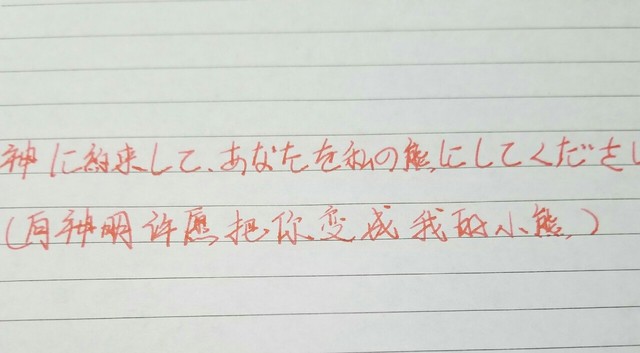 神に約束して、あなたを私の熊にしてくださし
(向神明许愿把你变成我的小熊)